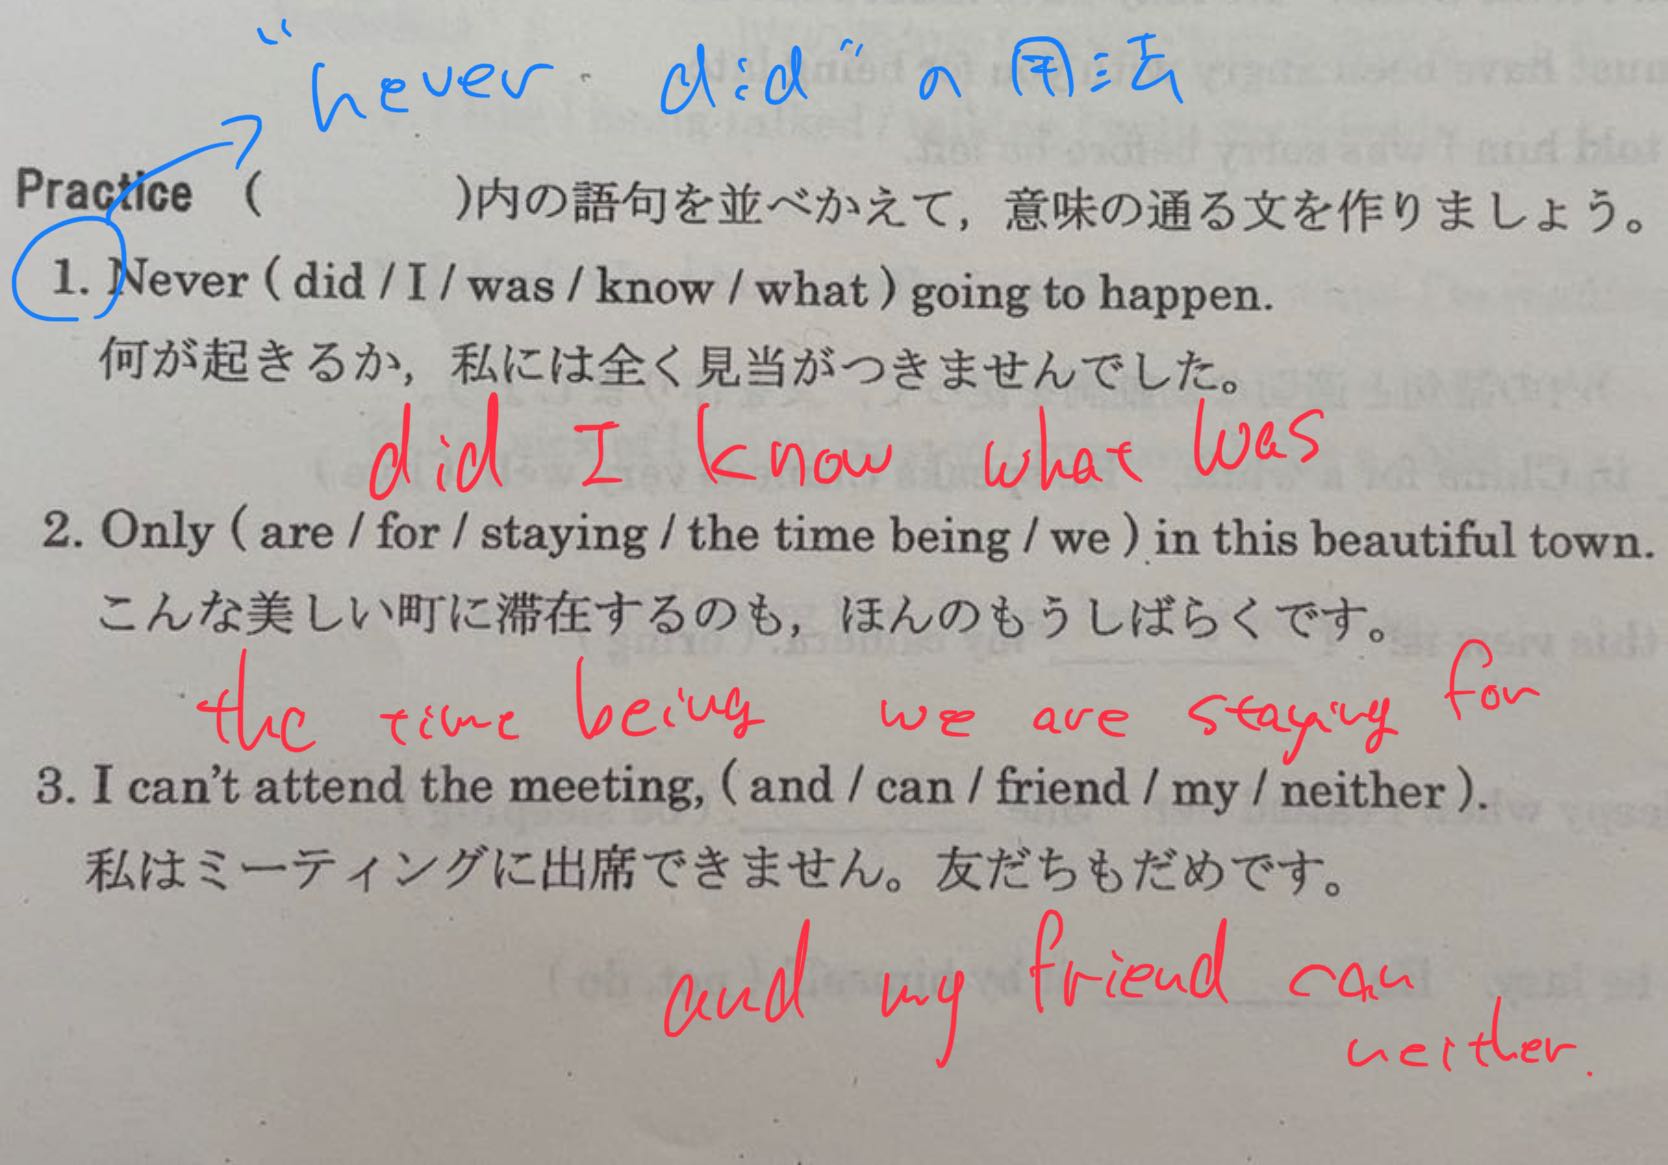 "never did" の用法
Practice ( )内の語句を並べかえて，意味の通る文を作りましょう。
1. Never ( did / I / was / know / what ) going to happen.
何が起きるか，私には全く見当がつきませんでした。
did I know what was
2. Only ( are / for / staying / the time being / we ) in this beautiful town.
こんな美しい町に滞在するのも，ほんのもうしばらくです。
the time being we are staying for
3. I can't attend the meeting, ( and / can / friend / my / neither ).
私はミーティングに出席できません。友だちもだめです。
and my friend can
neither.